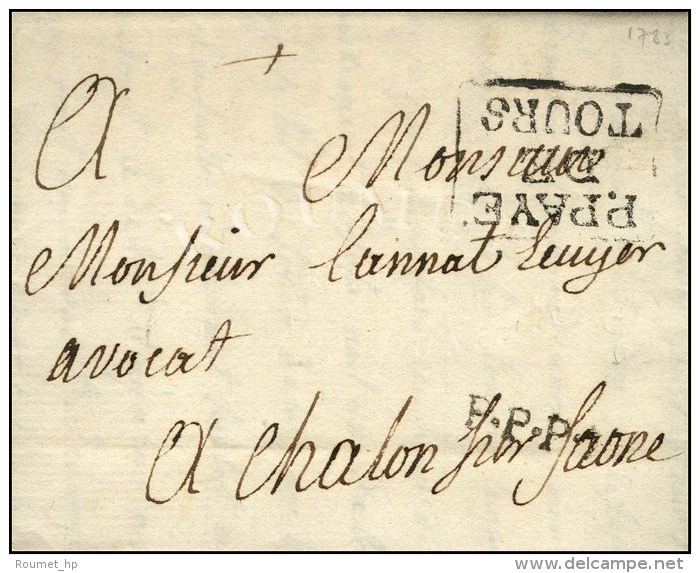 1783
A Monsieur
TOURS
DE
P.PAYÉ
Monsieur Cannat Ecuyer
avocat
P.P.P.
A Chalon sur Saone
Roumet_hp
delcampe.net